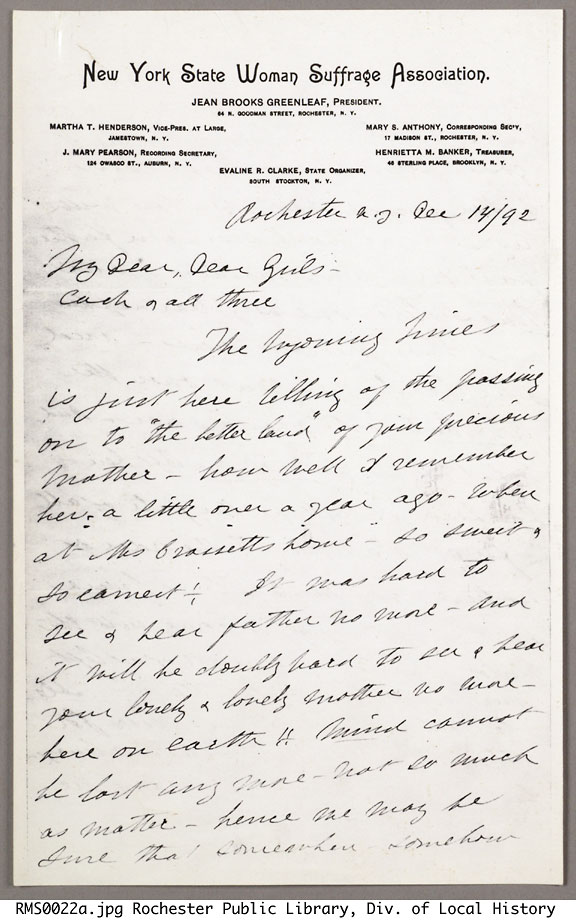 New York State Woman Suffrage Association.
JEAN BROOKS GREENLEAF, PRESIDENT.
64 N. GOODMAN STREET, ROCHESTER, N. Y.
MARTHA T. HENDERSON, VICE-PRES. AT LARGE,
JAMESTOWN, N. Y.
MARY S. ANTHONY, CORRESPONDING SEC'Y,
17 MADISON ST., ROCHESTER, N. Y.
J. MARY PEARSON, RECORDING SECRETARY,
124 OWASCO ST., AUBURN, N. Y.
HENRIETTA M. BANKER, TREASURER,
46 STERLING PLACE, BROOKLYN, N. Y.
EVALINE R. CLARKE, STATE ORGANIZER,
SOUTH STOCKTON, N. Y.
Rochester N.Y. Dec 14/92
My Dear, Dear Girls -
Each & all three
The Wyoming Times
is just here telling of the passing
on to "the better land" of your precious
mother - how well I remember
her - a little over a year ago - when
at Mrs Crossetts home - so sweet &
so earnest! It was hard to
see & hear father no more - and
it will be doubly hard to see & hear
your lonely & lovely mother no more -
here on earth!! Mind cannot
be lost any more - not so much
as matter - hence we may be
sure that somewhere - somehow
RMS0022a.jpg Rochester Public Library, Div. of Local History